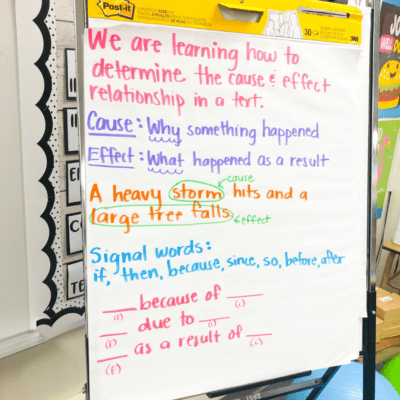 Post-it
30
3M
We are learning how to
determine the cause & effect
relationship in a text.
Cause: Why something happened
Effect: What happened as a result
cause
A heavy storm hits and a
large tree falls. effect
Signal words:
if, then, because, since, so, before, after
___ because of ___
___ due to ___
___ as a result of ___